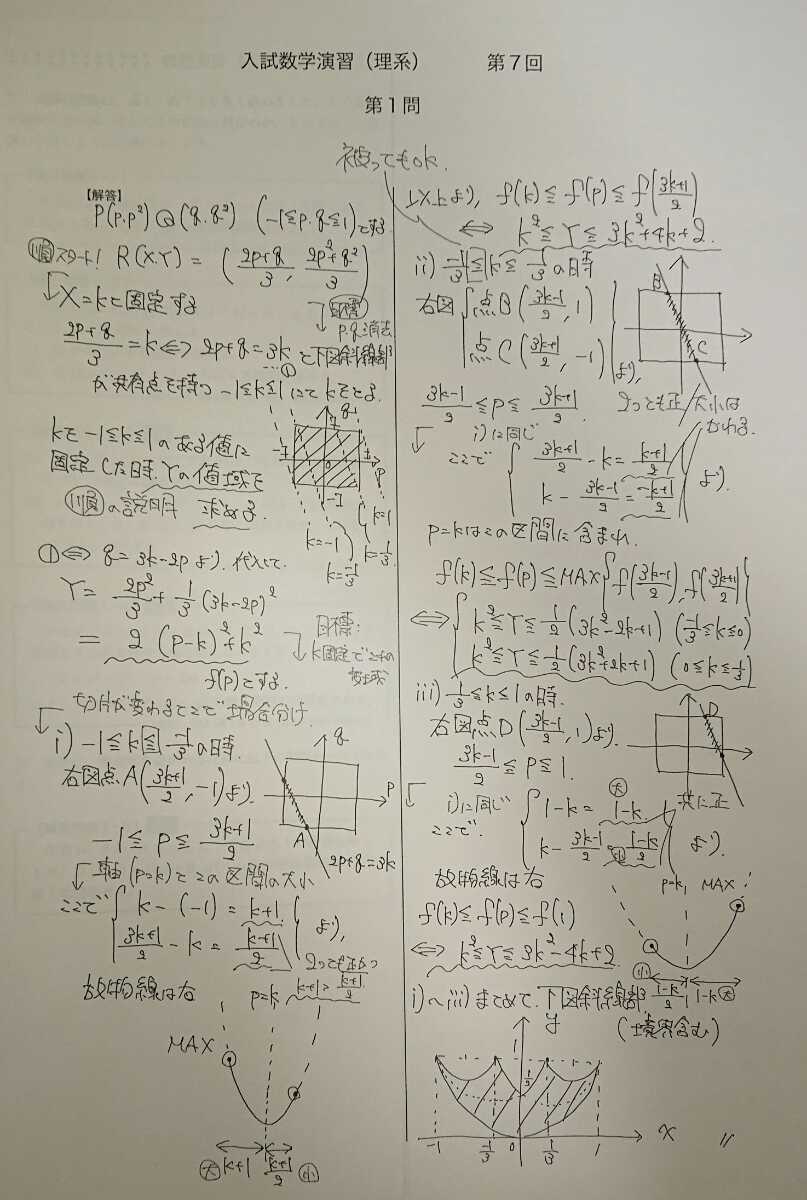 入試数学演習（理系）　第７回
第１問
被ってもok.
【解答】
P(p.p²) Q(q.q²) (-1≦p.q≦1)とする.
順 スタート! R(X.Y) = (2p+q/3, 2p²+q²/3)
X=kと固定する
目標
p.q消去
2p+q/3 = k ⇔ 2p+q=3k と下図斜線部
①
が共有点を持つ -1≦k≦1にてkをとる.
kを-1≦k≦1のある値に
固定した時、Yの値域を
順の説明 求める.
q
1
-1
0
1
p
-1
k=1
k=-1
k=1/3
k=-1/3
①⇔ q=3k-2pより、代入して.
Y= 2p²/3 + 1/3(3k-2p)²
= 2(p-k)²+k²
f(p)とする.
目標:
k固定での
変域
切片が変わるのでここで場合分け
i) -1≦k≦-1/3の時.
右図点A(3k+1/2, -1)より.
-1≦p≦3k+1/2
q
P
A
2p+q=3k
軸(p=k)とこの区間の大小
ここで { k-(-1) = k+1.
3k+1/2 - k = k+1/2 } より,
2つとも正かつ
k+1 > k+1/2
放物線は右
p=k
MAX
大 k+1 k+1/2 小
以上より, f(k)≦f(p)≦f(3k+1/2)
⇔ k²≦Y≦3k²+4k+2.
ii) -1/3≦k≦1/3の時
右図 { 点B(3k-1/2, 1)
点C(3k+1/2, -1) } より,
B
C
3k-1/2 ≦p≦ 3k+1/2
2つとも正 大小は
かわる.
i)に同じ
ここで { 3k+1/2 - k = k+1/2
k - 3k-1/2 = -k+1/2 } より.
p=kはこの区間に含まれ.
f(k)≦f(p)≦MAX{f(3k-1/2), f(3k+1/2)}
⇔ { k²≦Y≦1/2(3k²-2k+1) (-1/3≦k≦0)
k²≦Y≦1/2(3k²+2k+1) (0≦k≦1/3)
iii) 1/3≦k≦1の時.
右図点D(3k-1/2, 1)より.
3k-1/2 ≦p≦1.
D
i)に同じ
ここで. { 1-k = 1-k. 大
k - 3k-1/2 = 1-k/2 小 } より.
共に正
放物線は右
p=k
MAX
f(k)≦f(p)≦f(1)
⇔ k²≦Y≦3k²-4k+2
小 1-k/2 1-k 大
i)〜iii)まとめて、下図斜線部
(境界含む)
y
1
1/2
-1 -1/3 0 1/3 1 x
〃